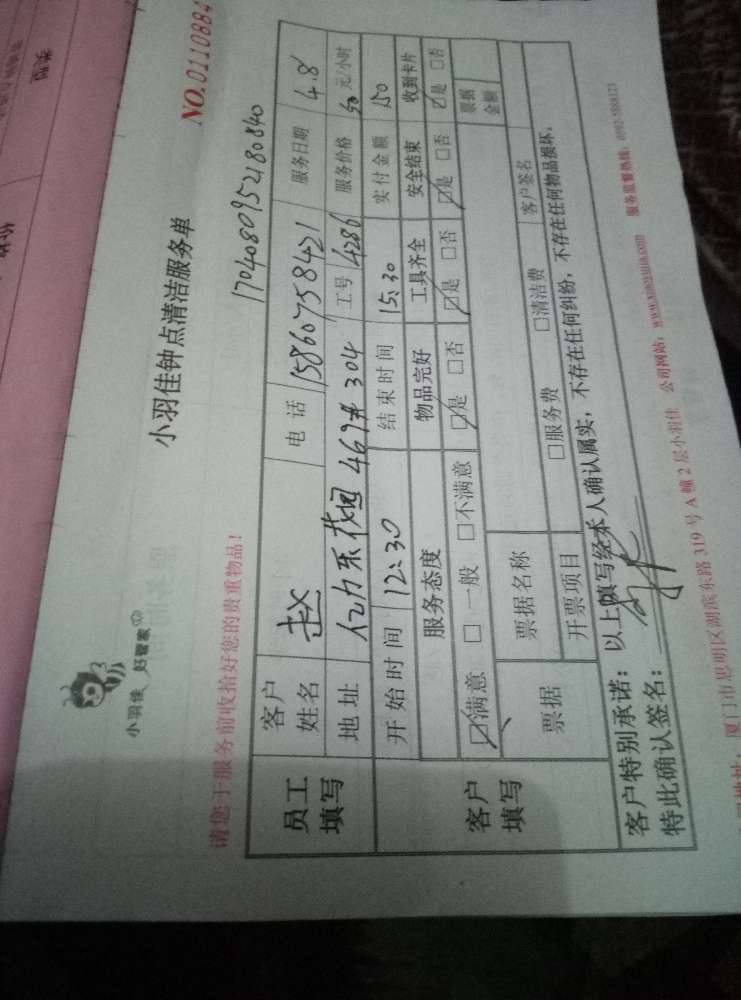 小羽佳 好管家
小羽佳钟点清洁服务单
NO.0110884
请您于服务前收拾好您的贵重物品！
1704080952180840
员工填写
客户姓名 赵 电话 15860758421 服务日期 4.8
地址 亿力东花园 469# 304 工号 4286 服务价格 50 元/小时
开始时间 12:30 结束时间 15:30 实付金额 150
客户填写
服务态度 物品完好 工具齐全 安全结束 收到卡片
☑满意 □一般 □不满意 ☑是 □否 ☑是 □否 ☑是 □否 ☑是 □否
票据 票据名称 客户签名 票据金额
开票项目 □服务费 □清洁费
客户特别承诺：以上填写经本人确认属实，不存在任何纠纷，不存在任何物品损坏。
特此确认签名：
厦门市思明区湖滨东路319号A幢2层小羽佳 公司网站：www.xiaoyujia.com 服务监督热线：0592-5888123